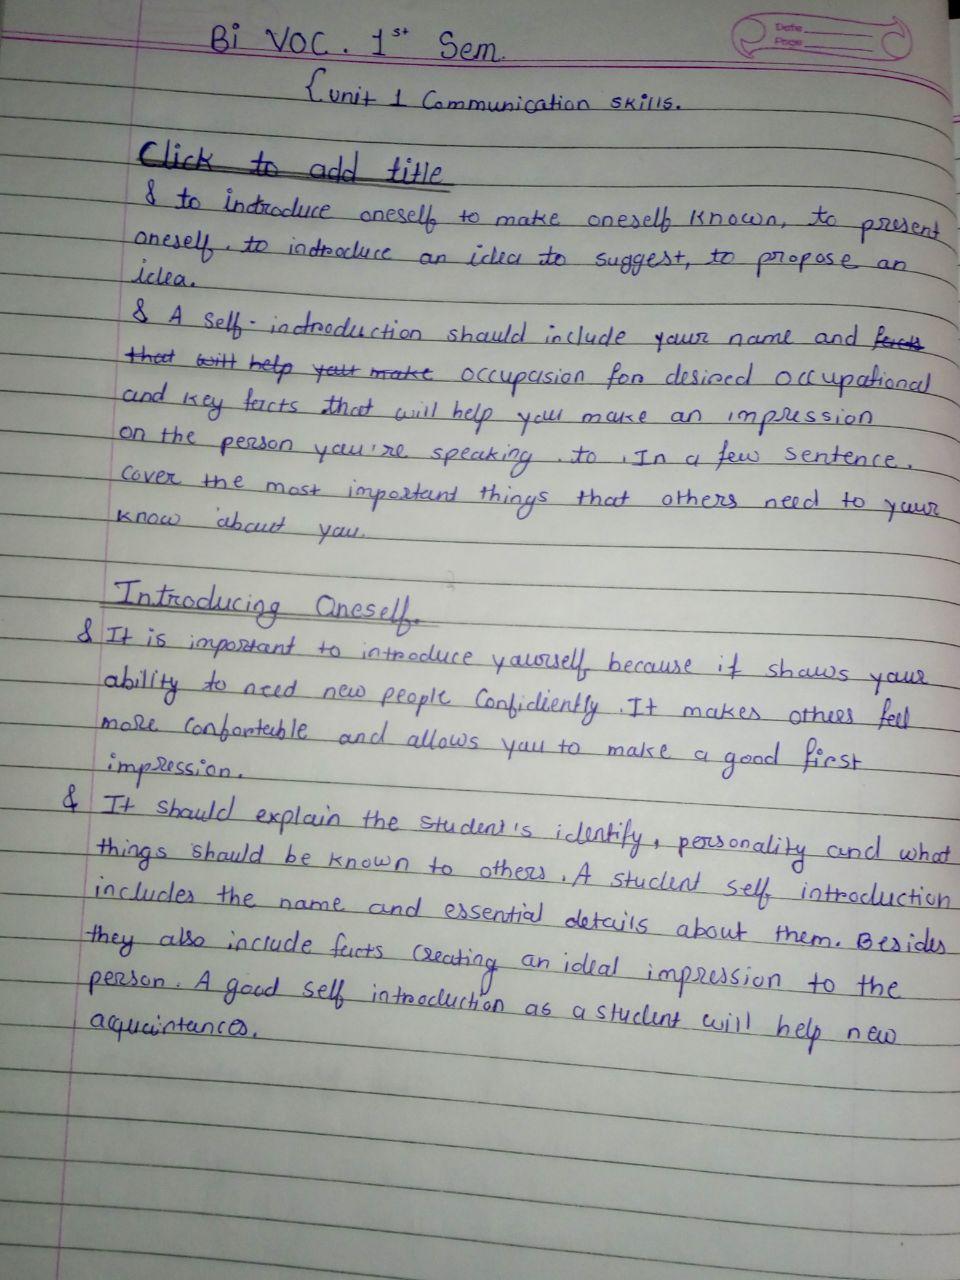 Bi VOC. 1st Sem.
Date
Page
{unit 1 Communication skills.
Click to add title
& to introduce oneself to make oneself known, to present
oneself. to indroduce an idea to suggest, to propose an
idea.
& A self-indroduction should include your name and facts
that will help you make occupasion for desired occupational
and key facts that will help you make an impression
on the person you're speaking to. In a few sentence.
cover the most important things that others need to your
know about you.
Introducing Oneself.
& It is important to introduce yourself because it shows your
ability to need new people Confidiently. It makes others feel
more confortable and allows you to make a good first
impression.
& It should explain the student's identify, personality and what
things should be known to others. A student self introduction
includes the name and essential details about them. Besides
they also include facts creating an ideal impression to the
person. A good self introduction as a student will help new
aquaintances.